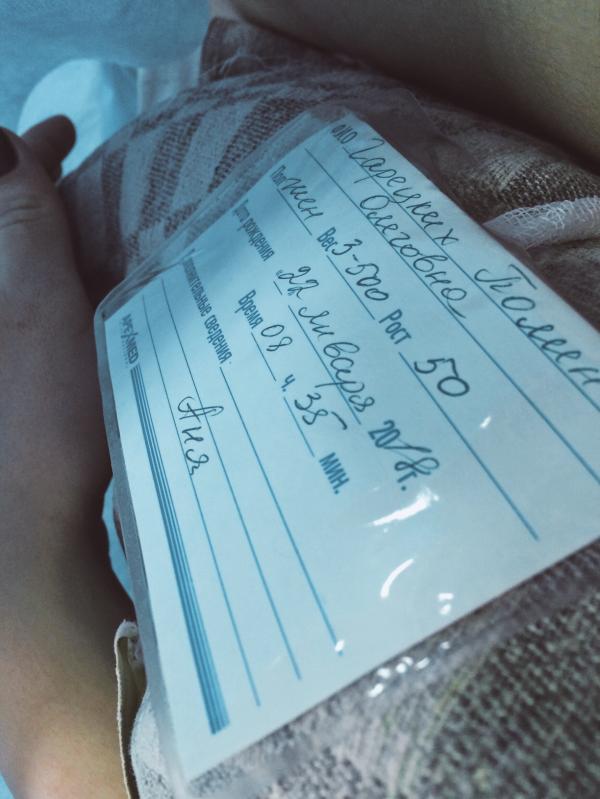 ФИО Гарецких Полин
Олеговна
Пол жен Вес 3-500 Рост 50
Дата рождения 22 января 2018г.
Время 08 ч. 35 мин.
Дополнительные сведения
Аня
APEXMED